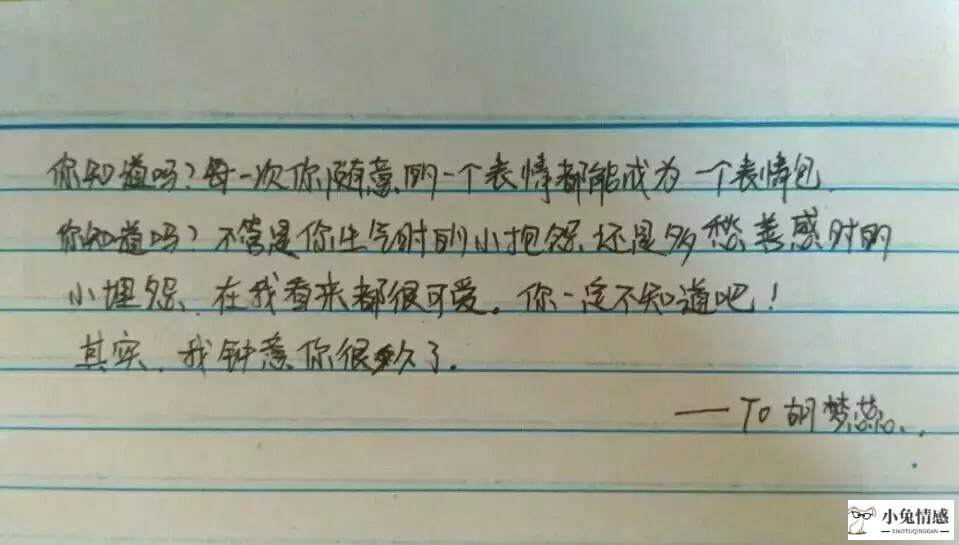 你知道吗?每一次你随意的一个表情都能成为一个表情包
你知道吗?不管是你生气时的小抱怨、还是多愁善感时的
小埋怨、在我看来都很可爱。你一定不知道吧!
其实,我钟意你很久了.
——To 胡梦蕊..
小兔情感
XIAOTUQINGGAN